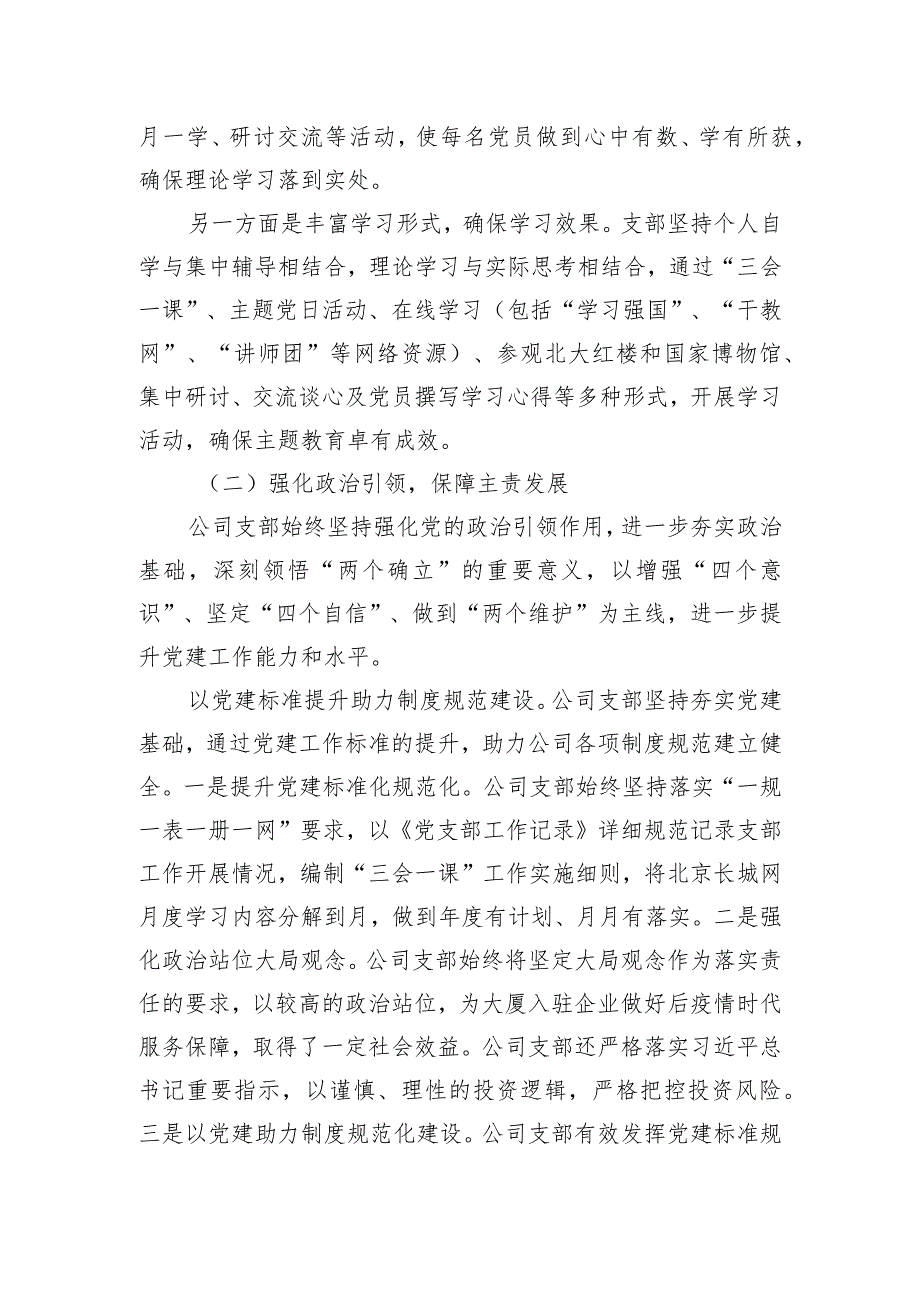 月一学、研讨交流等活动，使每名党员做到心中有数、学有所获，
确保理论学习落到实处。
另一方面是丰富学习形式，确保学习效果。支部坚持个人自
学与集中辅导相结合，理论学习与实际思考相结合，通过“三会
一课”、主题党日活动、在线学习（包括“学习强国”、“干教
网”、“讲师团”等网络资源）、参观北大红楼和国家博物馆、
集中研讨、交流谈心及党员撰写学习心得等多种形式，开展学习
活动，确保主题教育卓有成效。
（二）强化政治引领，保障主责发展
公司支部始终坚持强化党的政治引领作用，进一步夯实政治
基础，深刻领悟“两个确立”的重要意义，以增强“四个意
识”、坚定“四个自信”、做到“两个维护”为主线，进一步提
升党建工作能力和水平。
以党建标准提升助力制度规范建设。公司支部坚持夯实党建
基础，通过党建工作标准的提升，助力公司各项制度规范建立健
全。一是提升党建标准化规范化。公司支部始终坚持落实“一规
一表一册一网”要求，以《党支部工作记录》详细规范记录支部
工作开展情况，编制“三会一课”工作实施细则，将北京长城网
月度学习内容分解到月，做到年度有计划、月月有落实。二是强
化政治站位大局观念。公司支部始终将坚定大局观念作为落实责
任的要求，以较高的政治站位，为大厦入驻企业做好后疫情时代
服务保障，取得了一定社会效益。公司支部还严格落实习近平总
书记重要指示，以谨慎、理性的投资逻辑，严格把控投资风险。
三是以党建助力制度规范化建设。公司支部有效发挥党建标准规